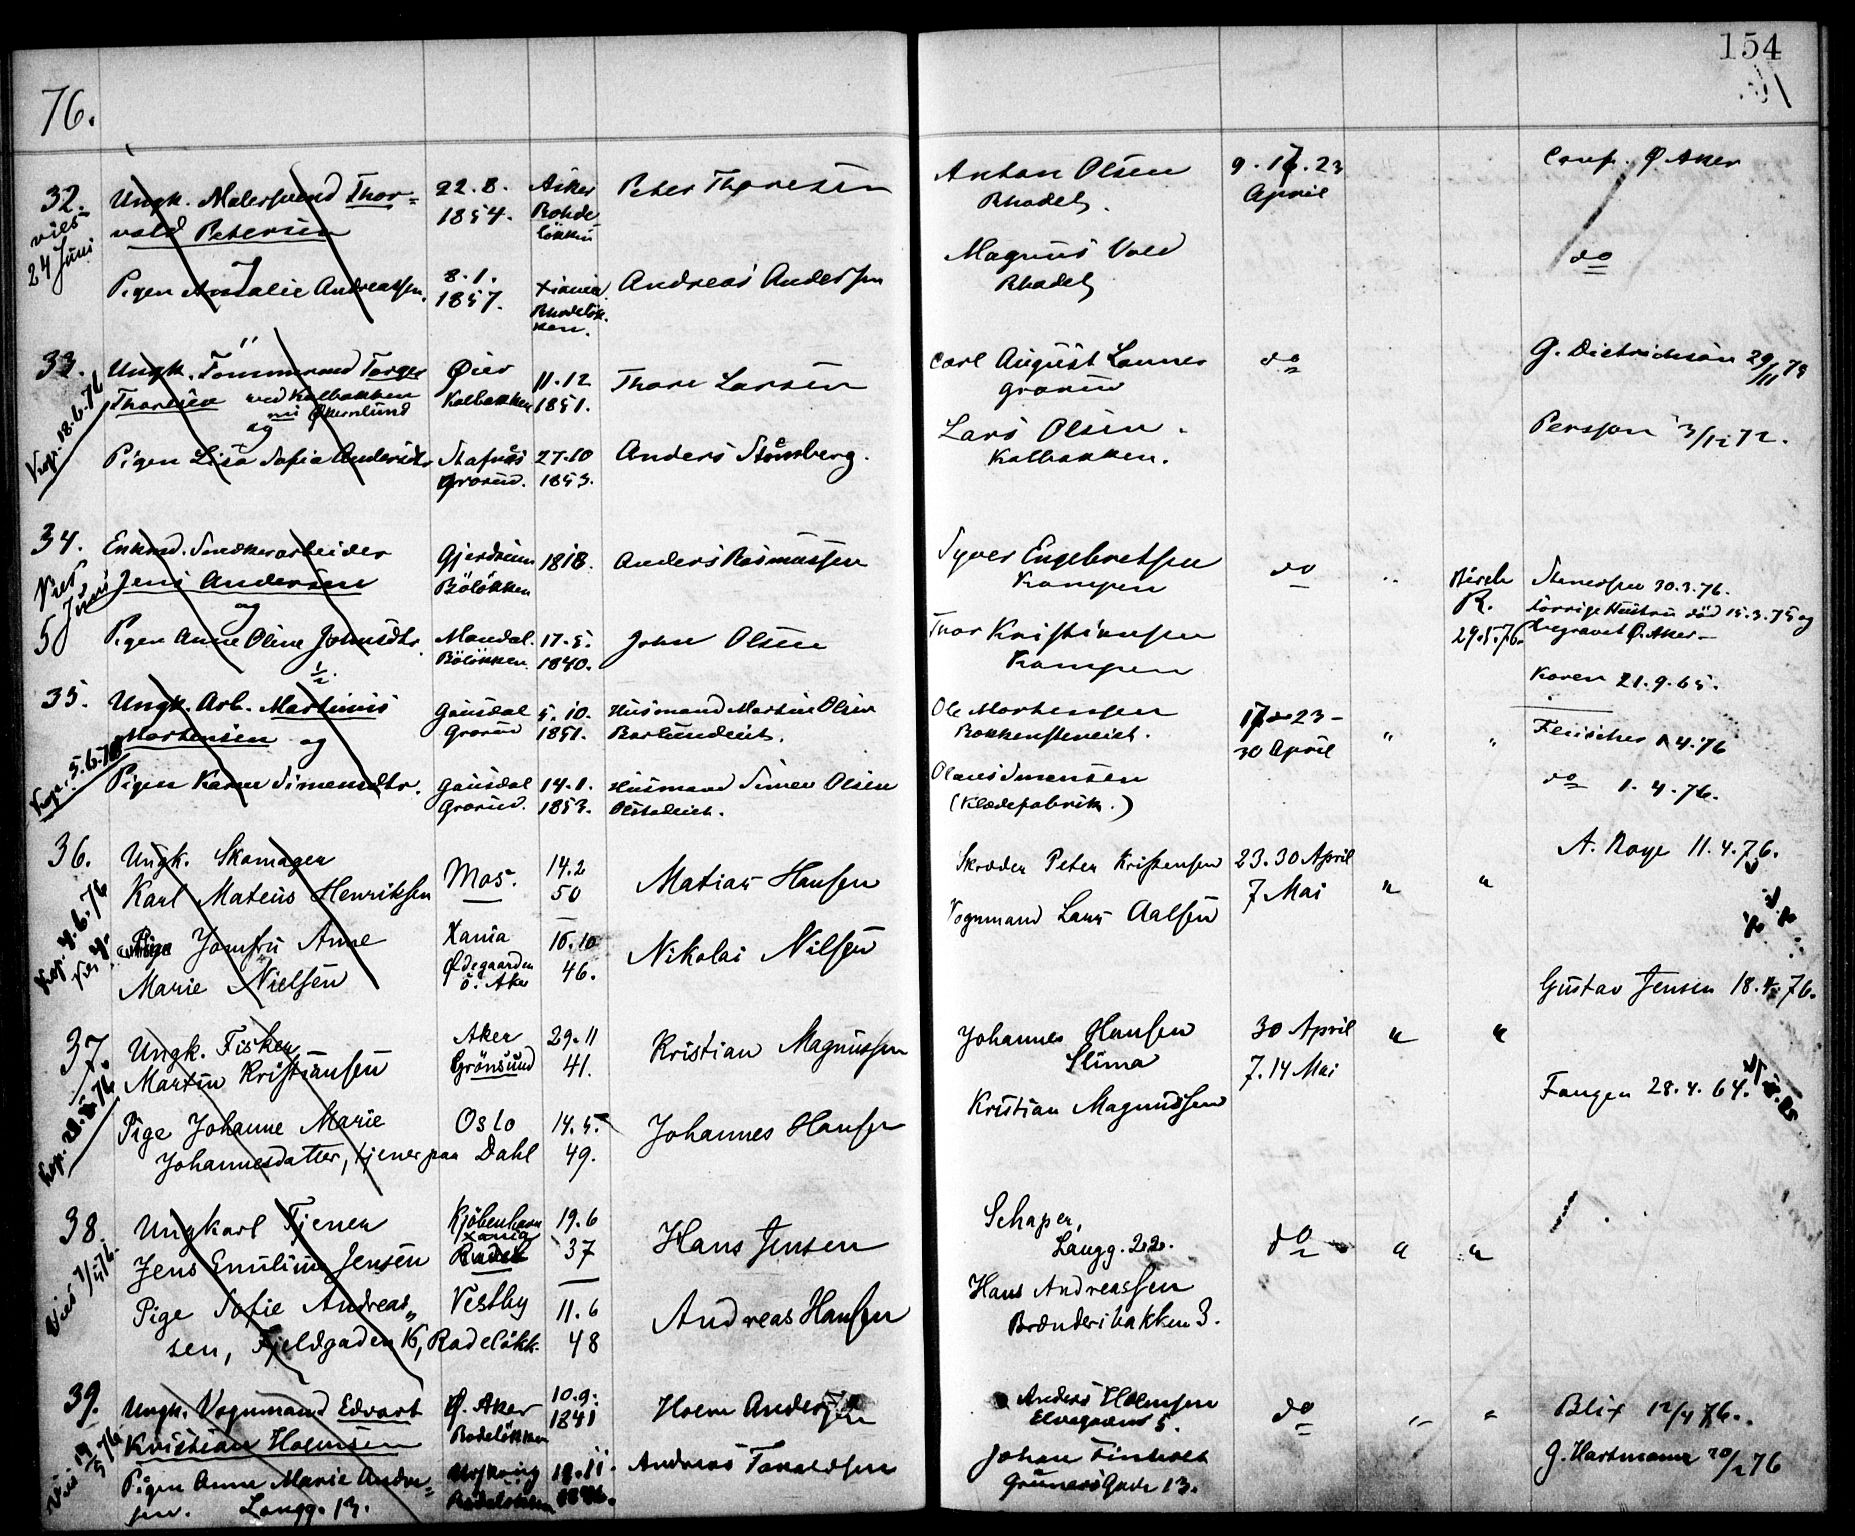 154
76.
32. Ungk. Malersvend Thor-
vald Petersen
22.8.
1854.
Aker
Rohde
lökken
Peter Thoresen
Anton Olsen
Rhodel.
9. 17. 23
April
Conf. Ø. Aker
viet
24 Juni
og
Pigen Amalie Andreassen.
8.1.
1857.
Xiania
Rhodelök-
ken.
Andreas Andersen
Magnus Vold
Rhodel.
do
33. Ungk. Tømmermand Torger
Thoresen ved Kalbakken
og
Øier
Kalbakken
11.12
1851.
Thore Larsen
Carl August
Grorud
do
G. Dietrichson 29/11 75
Kop. 18.6.76
Pigen Lisa Sofia Andersdtr
Grorud.
27.10
1853.
Anders
Lars Olsen.
Kalbakken.
Persson 3/12 72.
34. Enkmd. Snedkerarbeider
Jens Andersen
og
Gjerdrum
Bölökken
1818.
Anders Rasmussen
Syver Engebretsen
Kampen
do
"
R.
29.5.76.
Stenersen 30.3.76.
forrige Hustru död 15.3.75 og
begravet Ø. Aker
Viet
5 Juni
Pigen Anne Oline Johnsdtr.
Mandal.
Bölökken
17.5.
1840.
John Olsen
Thor Kristiansen
Kampen
Koren 21.9.65.
35. Ungk. Arb. Martinus
Mortensen og
Gausdal
Grorud
5.10.
1851.
Husmand Martin Olsen
Ole Mortensen
17 23-
30 April
"
"
Fleischer 1.4.76
Kop. 5.6.76
Pigen Karen Simensdtr.
Gausdal
Grorud.
14.1.
1853.
Husmand Simen Olsen
Olaus Simensen
(Klædefabrik.)
do 1.4.76.
36. Ungk. Skomager
Karl Mateus Henriksen
Mos.
14.2
50
Matias Hansen
Skræder Peter Kristensen
23. 30 April
7 Mai
"
"
A. Roye 11.4.76.
Jomfru Anne
Marie Nielsen
Xania
Ødegaarden
Ö. Aker
15.10
46.
Nikolai Nilsen
Vognmand Lars Aalsen
Gustav Jensen 18.4.76.
37. Ungk. Fisker
Martin Kristiansen
Aker
Grönsund
29.11
41.
Kristian Magnussen
Johannes Hansen
Slima
30 April
7. 14 Mai
"
"
Pige Johanne Marie
Johannesdatter, tjener paa
Oslo
Dahl
14.5.
49.
Johannes Hansen
Kristian Magnussen
Fangen 28.4.64.
38. Ungkarl Tjener
Jens Emilius Jensen
Kjöbenhavn
Xania
Radel
19.6
37
Hans Jensen
Schaper,
Langg. 22.
do
"
"
Pige Sofie Andreas"
sen, Fjeldgaden 16, Radelökk.
Vestby
11.6
48
Andreas Hansen
Hans Andreassen
Brænderibakken 3.
39. Ungk. Vognmand Edvart
Kristian Holmsen
Ø. Aker
Rodelökken
10.9.
1841
Holm Andersen
Anders Holmsen
Elvegaden 5.
do
"
"
Blix 12/4 76.
Pigen Anne Marie Andre=
sen. Langg. 13.
Urskoug
Rodelökken
Andreas
Johan Finholt
Grüners Gade 13.
G. Hartmann 20/2 76